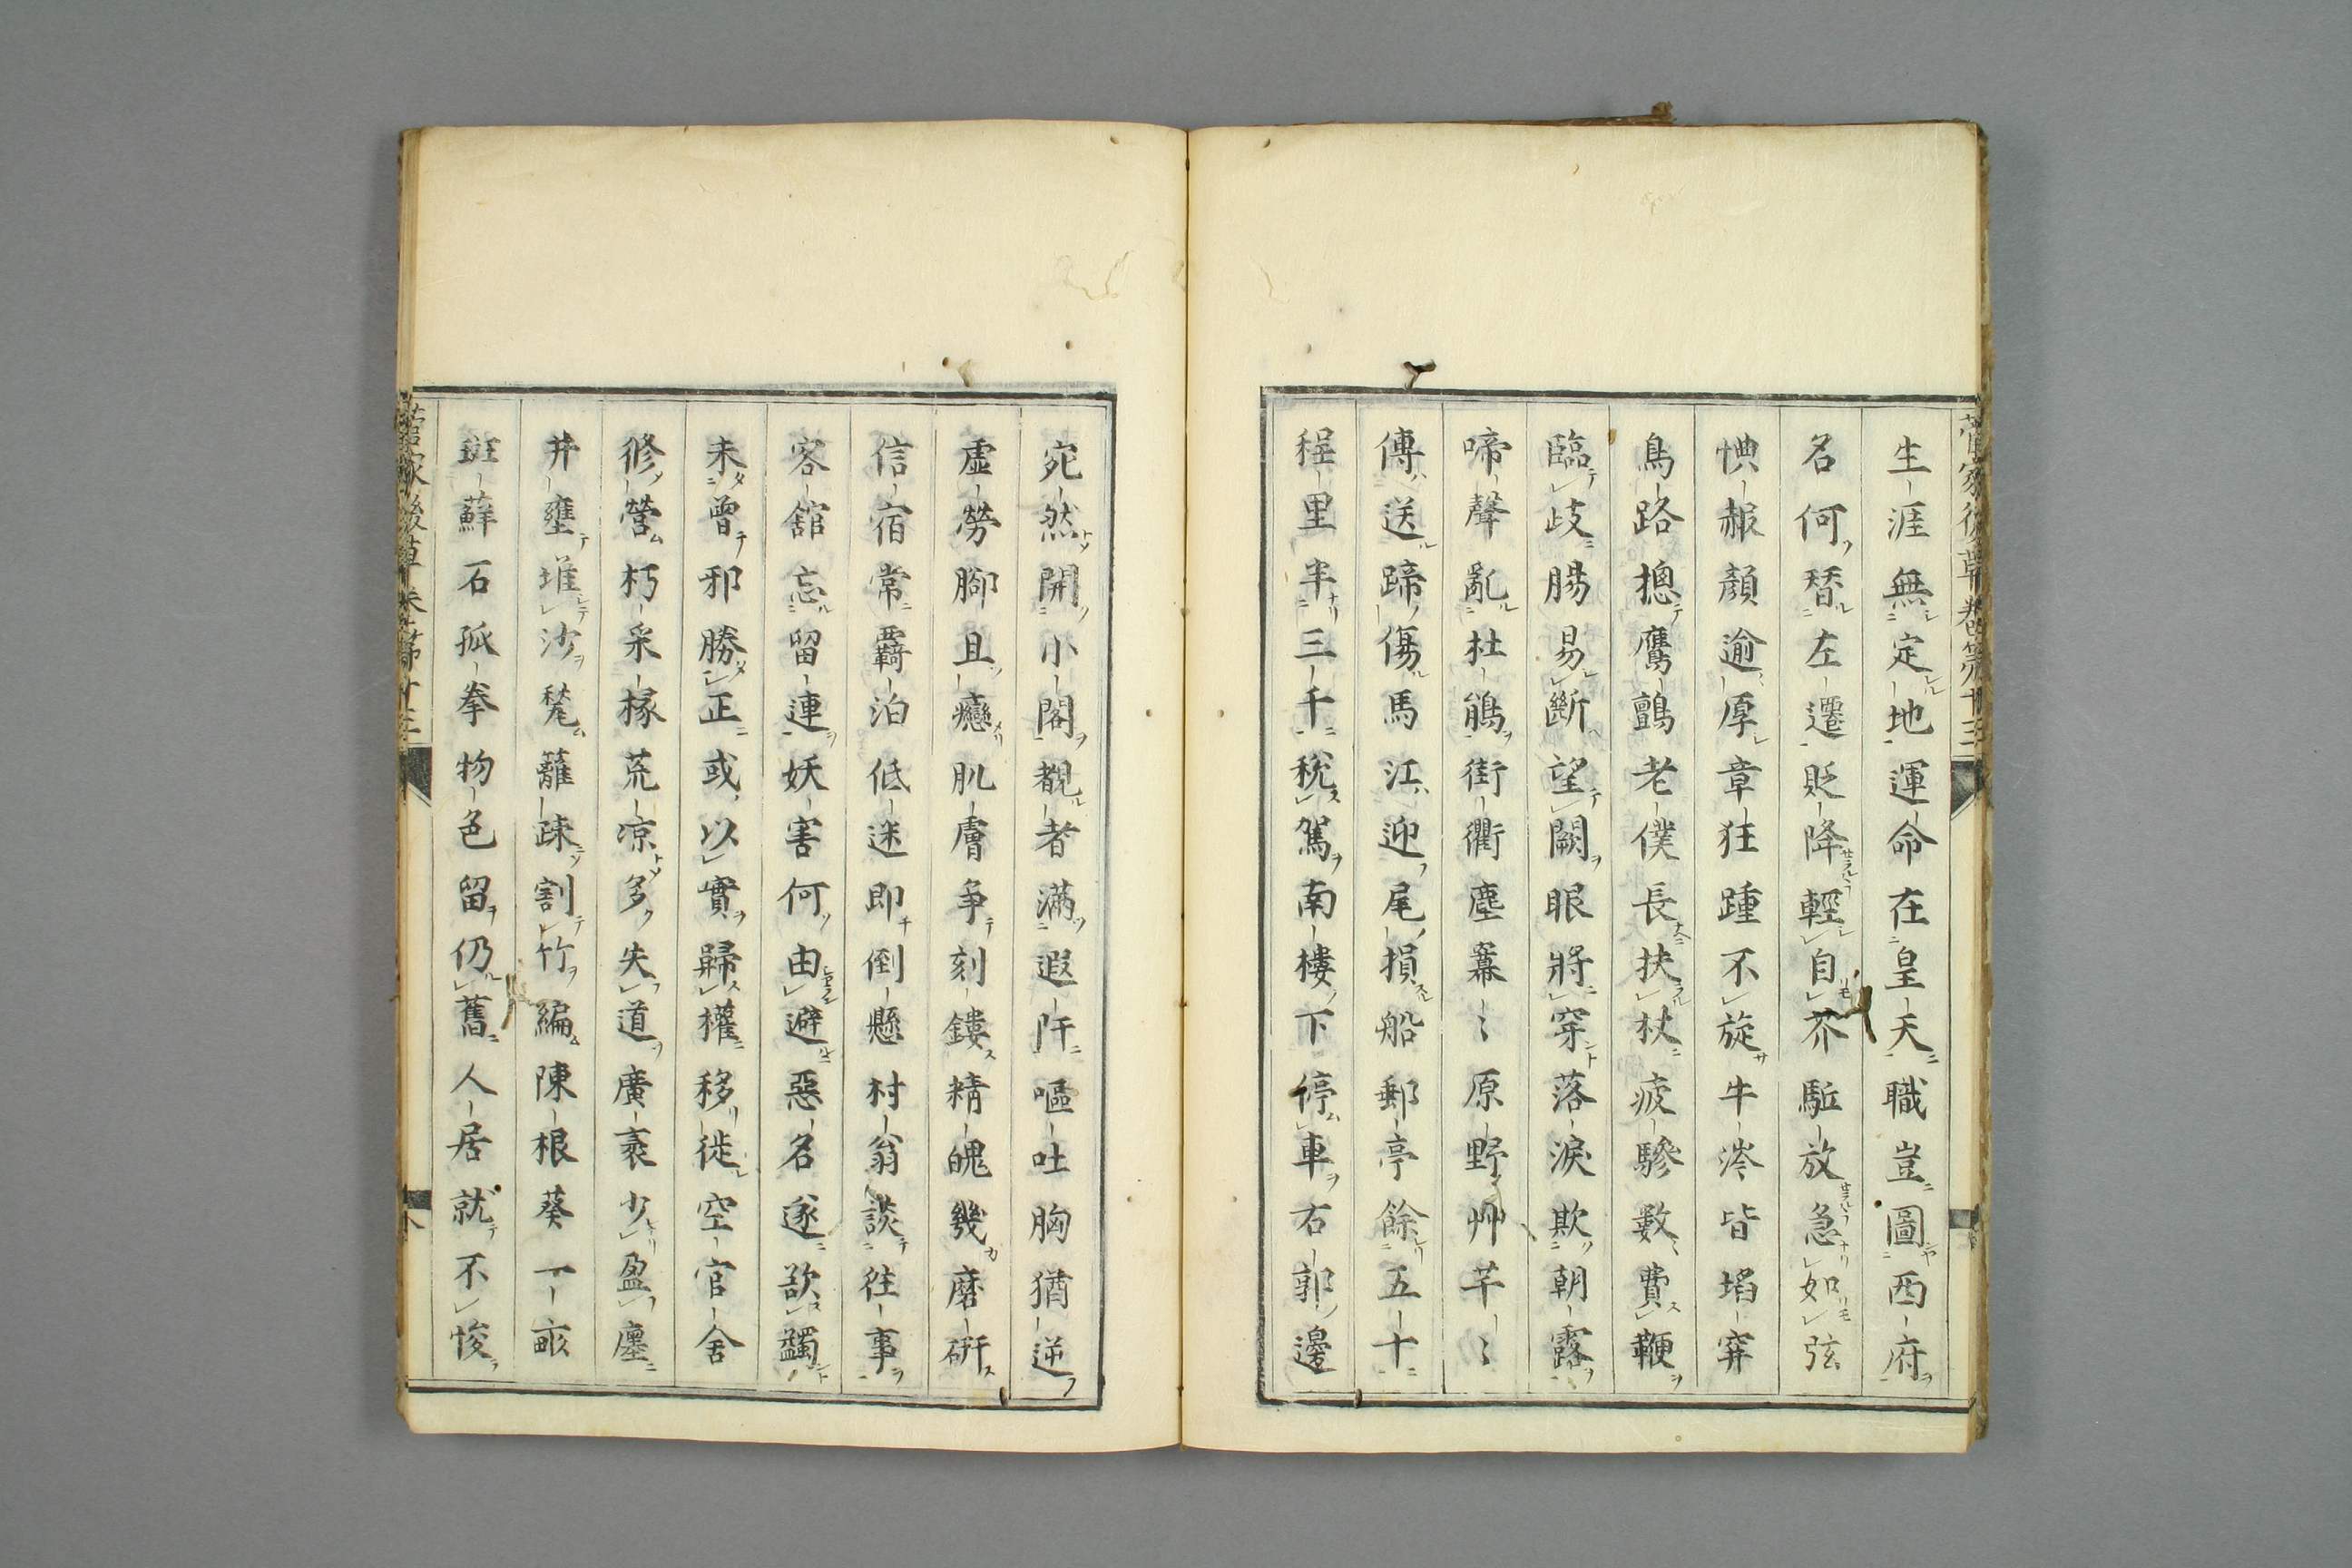 菅家後草卷第十三
生涯無定地運命在皇天職豈圖西府
名何替左遷貶降輕自芥駈放急如弦
㥏赧顏逾厚章狂踵不旋牛涔皆埳穽
鳥路摠鷹鸇老僕長扶杖疲驂數費鞭
臨歧腸易斷望闕眼將穿落淚欺朝露
啼聲亂杜鵑街衢塵冪〻原野艸芊〻
傳送蹄傷馬江迎尾損船郵亭餘五十
程里半三千稅駕南樓下停車右郭邊
宛然開小閤覩者滿遐阡嘔吐胸猶逆
虛勞腳且癴肌膚爭刻鏤精魄幾磨硏
信宿常羇泊低迷即倒懸村翁談往事
客舘忘留連妖害何由避惡名遂欲蠲
未曾邪勝正或以實歸權移徙空官舍
修營朽采椽荒凉多失道廣袤少盈廛
井壅堆沙甃籬疎割竹編陳根葵一畝
斑蘚石孤拳物色留仍舊人居就不悛
菅家後草卷第十三